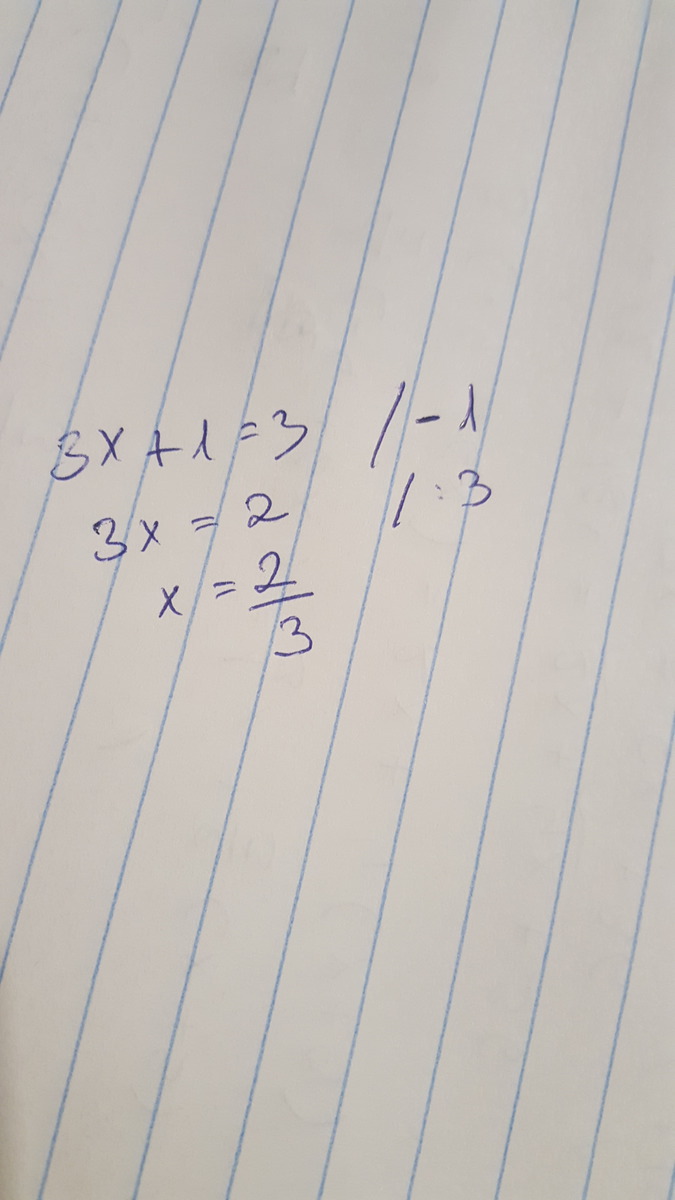 3x + 1 = 3 / - 1
3x = 2 / : 3
x = 2/3